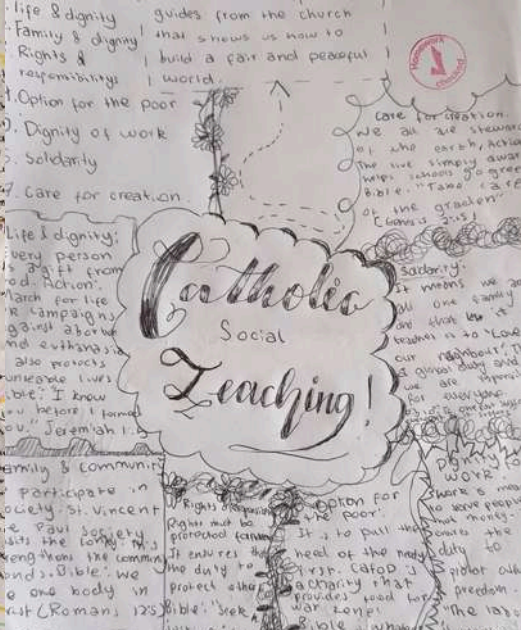 life & dignity
Family & dignity
Rights &
responsibilitys
Option for the poor
Dignity of work
Solidarity
Care for creation.
guides from the church
that shows us how to
build a fair and peaceful
world.
Homework
checked
Care for creation.
We all are steward
of the earth, Action
The live simply awar
help schools go gree
Bible. "Take care
of the graden"
Life & dignity:
very person
s a gift from
od. Action:
March for life
campaigns
gainst abortio
nd euthanasia
also protects
lives
ible: I know
ou before I formed
ou." Jeremiah 1:5
Catholic
Social
Teaching!
Solidarity:
It means we are
all one family
and that
teacher is to "Love
our neighbour". T
a global duty and
we are
for everyone.
amily & communit
participate in
ociety. St. Vincent
e Paul society
sits the lonely.
engthens the commun
and s. Bible: We
e one body in
rist (Romans 12:5)
Rights &
Rights must be
protected
It ensures the
the duty to
protect other
Bible: "Seek
Option for
the poor:
It is to put the
need of the needy
first. CAFOD is
a charity that
provides food for
war zone.
Bible
Dignity of
work
Work is mea
to serve people
not money.
duty to
freedom.
"The labo